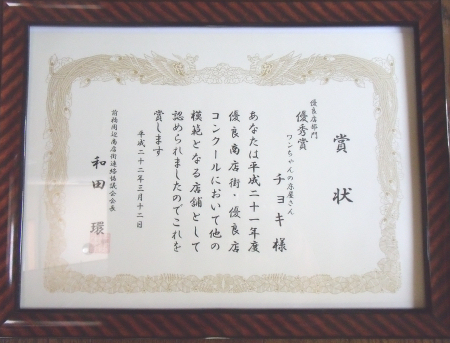 賞状
優良店部門
優秀賞
ワンちゃんの床屋さん
チョキ 様
あなたは平成二十一年度
優良商店街・優良店
コンクールにおいて他の
模範となる店舗として
認められましたのでこれを
賞します
平成二十二年三月十二日
前橋周辺商店街連絡協議会会長
和田 環